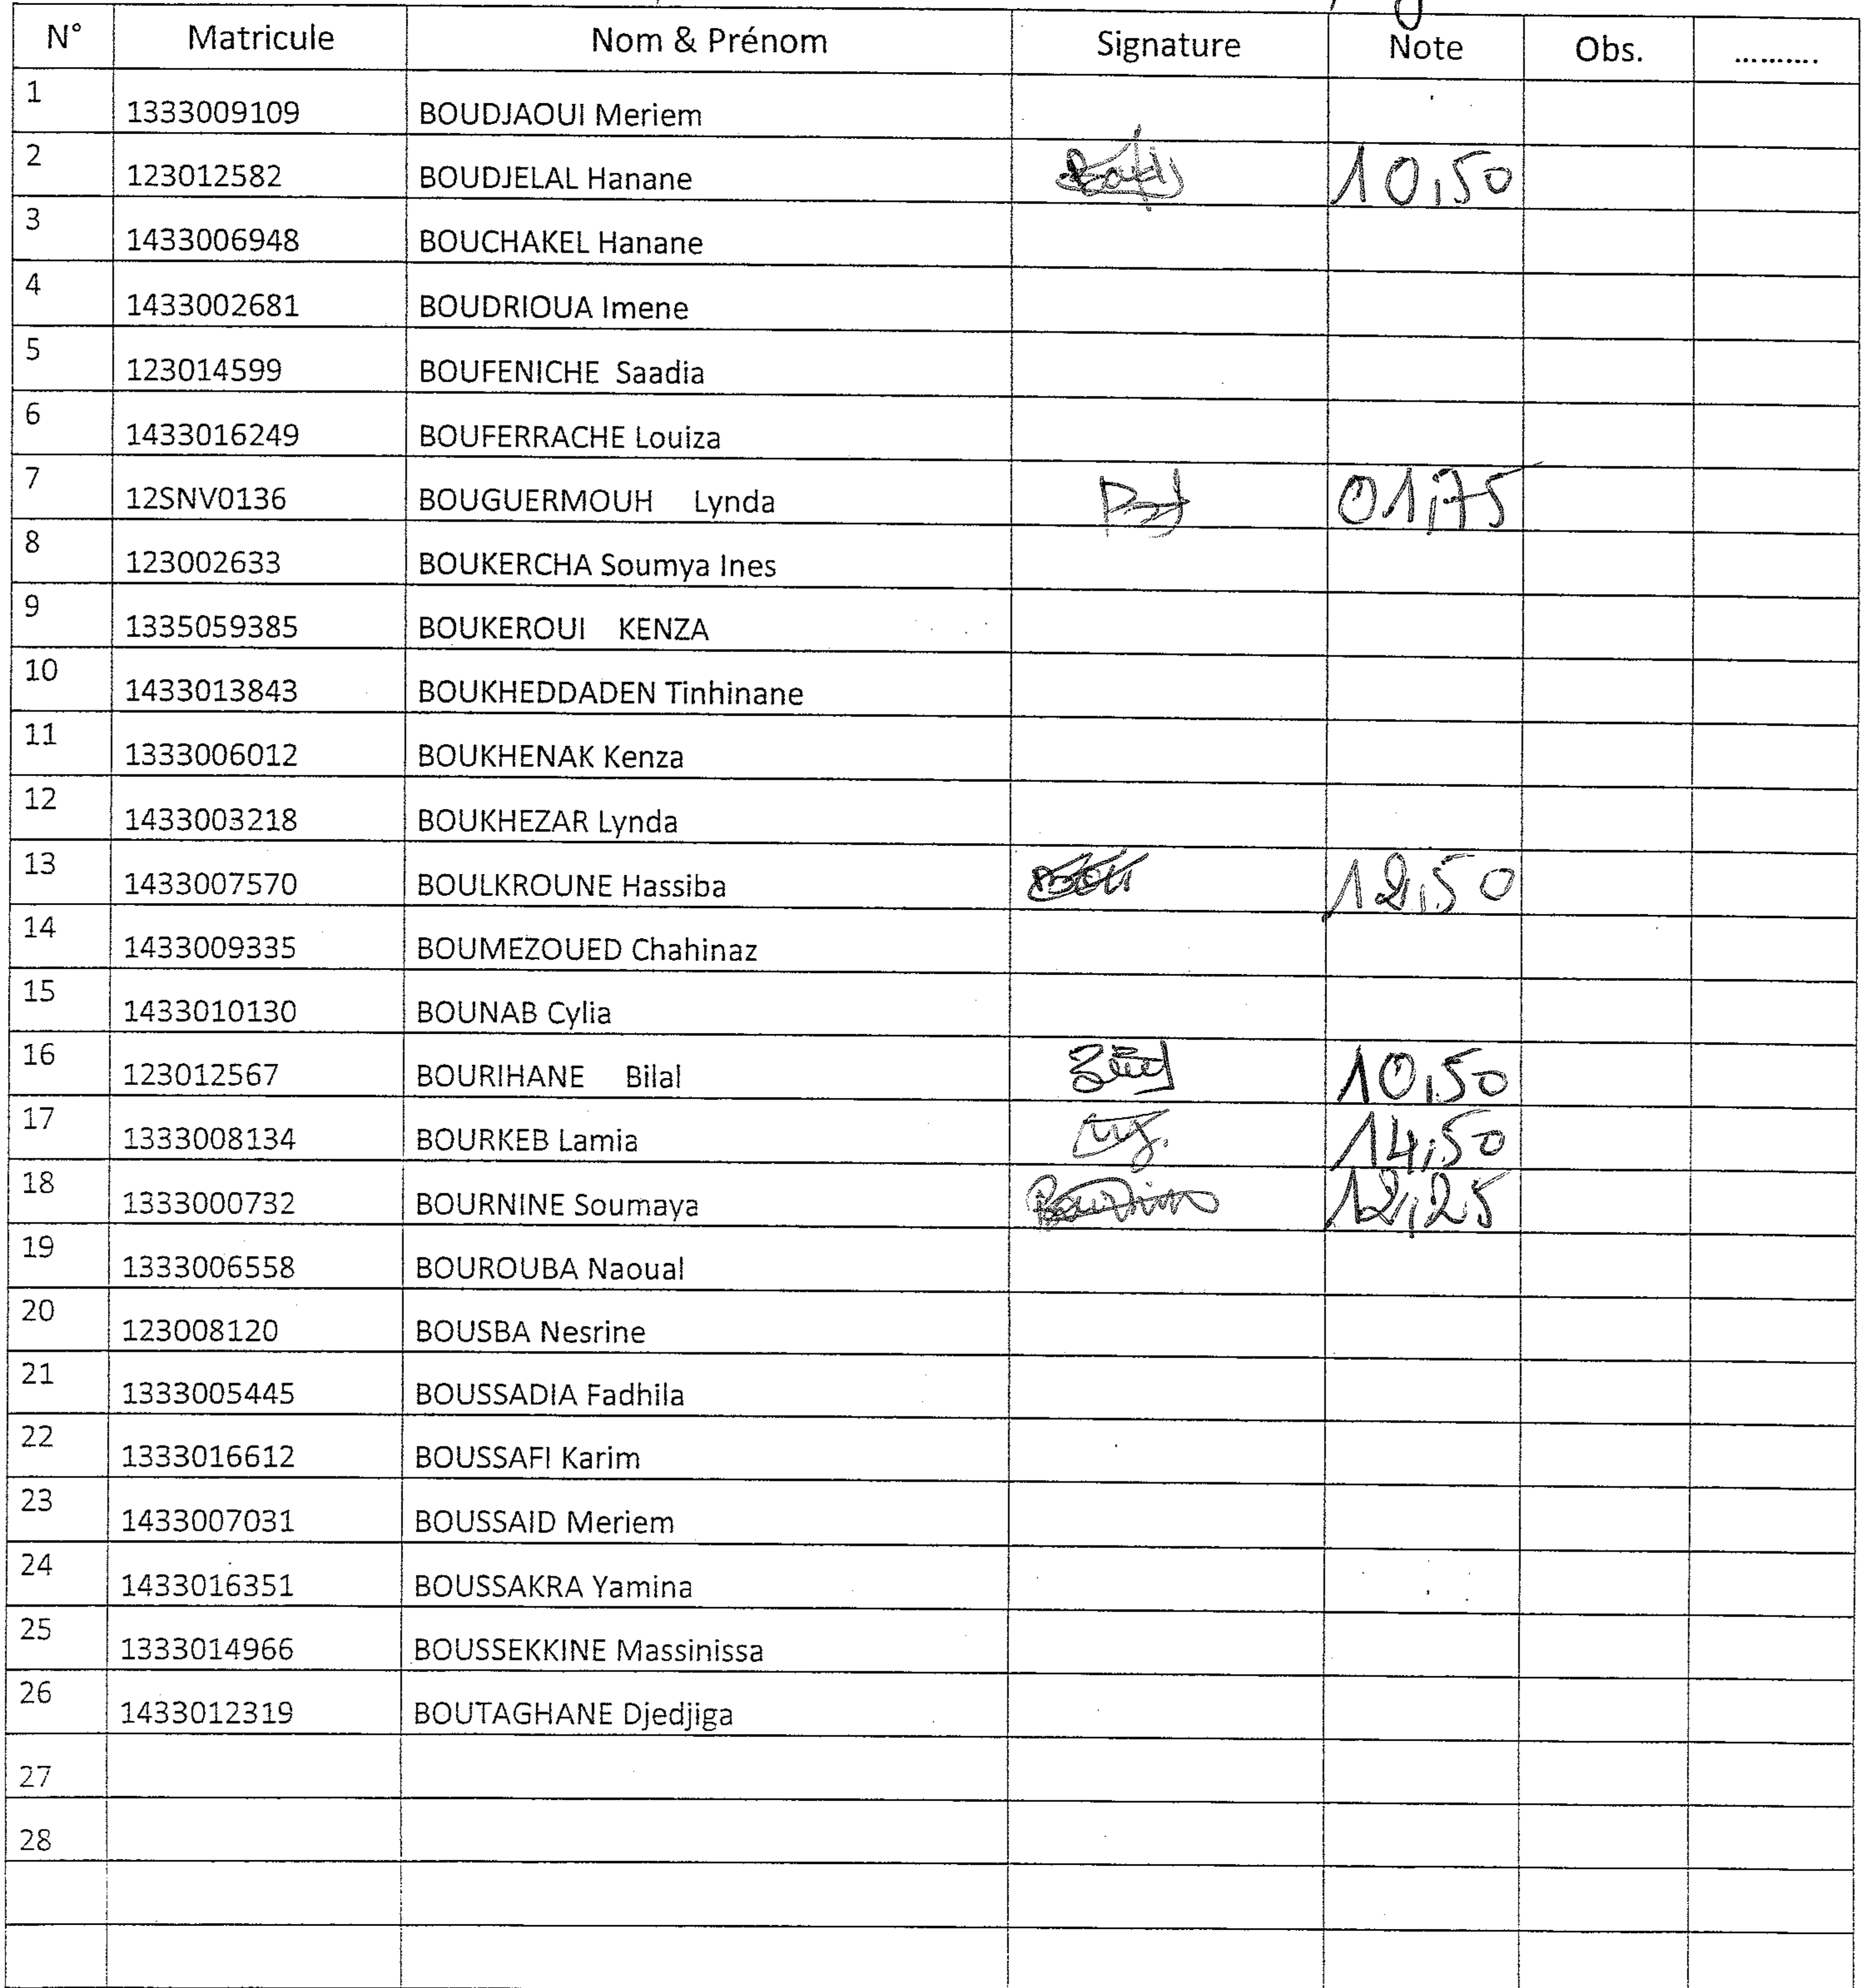 N° Matricule Nom & Prénom Signature Note Obs. ..........
1 1333009109 BOUDJAOUI Meriem
2 123012582 BOUDJELAL Hanane 10,50
3 1433006948 BOUCHAKEL Hanane
4 1433002681 BOUDRIOUA Imene
5 123014599 BOUFENICHE Saadia
6 1433016249 BOUFERRACHE Louiza
7 12SNV0136 BOUGUERMOUH Lynda 01,75
8 123002633 BOUKERCHA Soumya Ines
9 1335059385 BOUKEROUI KENZA
10 1433013843 BOUKHEDDADEN Tinhinane
11 1333006012 BOUKHENAK Kenza
12 1433003218 BOUKHEZAR Lynda
13 1433007570 BOULKROUNE Hassiba 12,50
14 1433009335 BOUMEZOUED Chahinaz
15 1433010130 BOUNAB Cylia
16 123012567 BOURIHANE Bilal 10,50
17 1333008134 BOURKEB Lamia 14,50
18 1333000732 BOURNINE Soumaya 12,25
19 1333006558 BOUROUBA Naoual
20 123008120 BOUSBA Nesrine
21 1333005445 BOUSSADIA Fadhila
22 1333016612 BOUSSAFI Karim
23 1433007031 BOUSSAID Meriem
24 1433016351 BOUSSAKRA Yamina
25 1333014966 BOUSSEKKINE Massinissa
26 1433012319 BOUTAGHANE Djedjiga
27
28